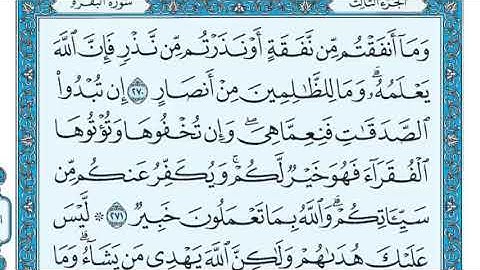 الجزء الثالث سورة البقرة
وَمَآ أَنفَقْتُم مِّن نَّفَقَةٍ أَوْ نَذَرْتُم مِّن نَّذْرٍ فَإِنَّ ٱللَّهَ
يَعْلَمُهُۥ ۗ وَمَا لِلظَّـٰلِمِينَ مِنْ أَنصَارٍ ٢٧٠ إِن تُبْدُوا۟
ٱلصَّدَقَـٰتِ فَنِعِمَّا هِىَ ۖ وَإِن تُخْفُوهَا وَتُؤْتُوهَا
ٱلْفُقَرَآءَ فَهُوَ خَيْرٌ لَّكُمْ ۚ وَيُكَفِّرُ عَنكُم مِّن
سَيِّـَٔاتِكُمْ ۗ وَٱللَّهُ بِمَا تَعْمَلُونَ خَبِيرٌ ٢٧١ ۞ لَّيْسَ
عَلَيْكَ هُدَىٰهُمْ وَلَـٰكِنَّ ٱللَّهَ يَهْدِى مَن يَشَآءُ ۗ وَمَا